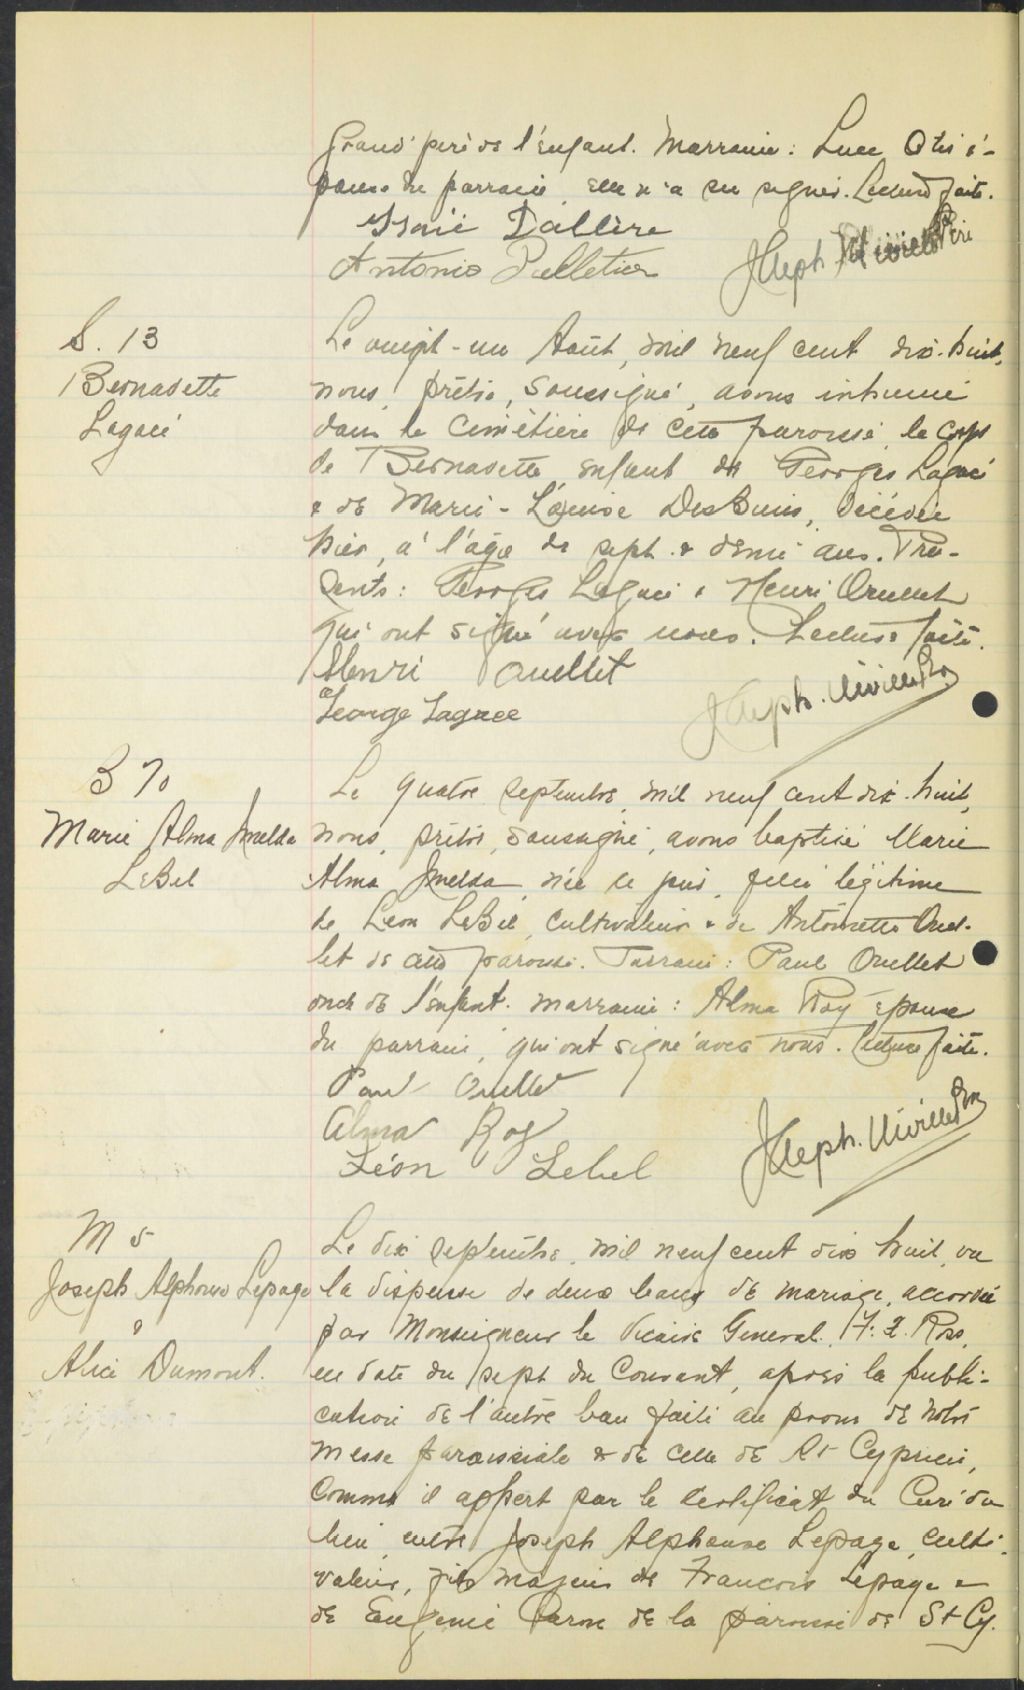 Grand père de l'enfant. Marraine: Luce Otis é-
pouse du parrain elle n'a su signer. Lecture faite.
Israël Dallère
Antonio Pelletier Joseph
S. 13
Bernadette
Lagacé
Le vingt-un Août, mil neuf cent dix-huit,
nous, prêtre, soussigné, avons inhumé
dans le cimétière de cette paroisse le corps
de Bernadette enfant de Georges Lagacé
& de Marie-Louise DesBuis, décédée
hier, à l'âge de sept & demi ans. Pré-
sents: Georges Lagacé & Henri Ouellet
qui ont signé avec nous. Lecture faite.
Henri Ouellet
George Lagacee Joseph. Miville Ptre
B 70
Marie Alma Imelda
LeBel
Le quatre septembre mil neuf cent dix-huit,
nous, prêtre, soussigné, avons baptisé Marie
Alma Imelda née le jour, fille légitime
de Léon LeBel, cultivateur & de Antoinette Ouel-
let de cette paroisse. Parrain: Paul Ouellet
oncle de l'enfant. Marraine: Alma Roy épouse
du parrain, qui ont signé avec nous. Lecture faite.
Paul Ouellet
Alma Roy
Léon Lebel Joseph. Miville Ptre
M 5
Joseph Alphonse Lepage
&
Alice Dumont.
Le dix septembre, mil neuf cent dix huit, vu
la dispense de deux bans de mariage, accordée
par Monseigneur le Vicaire General. F. X. Ross,
en date du sept du Courant, après la publi-
cation de l'autre ban faite au prone de notre
messe paroissiale & de celle de St Cyprien,
Comme il appert par le certificat du Curé du
lieu, entre Joseph Alphonse Lepage, culti-
vateur, fils majeur de Francois Lepage &
de Eugenie Caron de la paroisse de St Cy.